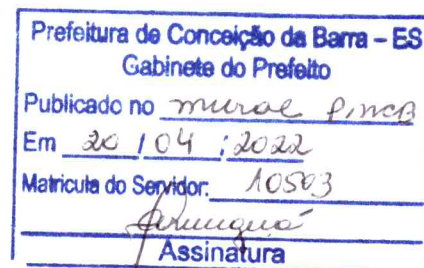 Prefeitura de Conceição da Barra – ES
Gabinete do Prefeito
Publicado no mural P.MCB
Em 20 / 04 / 2022
Matricula do Servidor: 10503
Assinatura